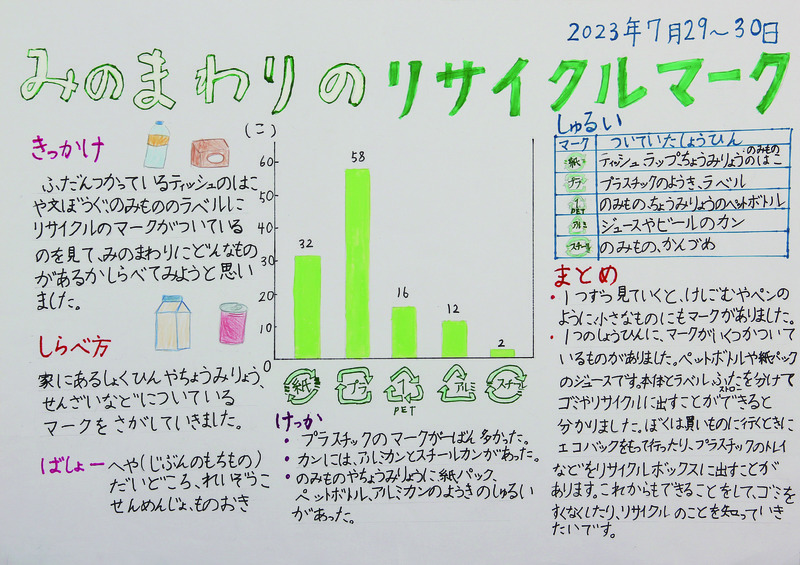 2023年7月29〜30日
みのまわりのリサイクルマーク
きっかけ
ふだんつかっているティッシュのはこ
や文ぼうぐ、のみもののラベルに
リサイクルのマークがついている
のを見て、みのまわりにどんなもの
があるかしらべてみようと思い
ました。
しらべ方
家にあるしょくひんやちょうみりょう、
せんざいなどについている
マークをさがしていきました。
ばしょーへや(じぶんのもちもの)
だいどころ、れいぞうこ
せんめんじょ、ものおき
(こ)
60
50
40
30
20
10
0
32
58
16
12
2
紙
プラ
1
PET
アルミ
スチール
けっか
・プラスチックのマークが一ばん多かった。
・カンには、アルミカンとスチールカンがあった。
・のみものやちょうみりょうに紙パック、
ペットボトル、アルミカンのようきのしゅるい
があった。
しゅるい
マーク ついていたしょうひん
紙 ティシュ、ラップ、ちょうみりょうのはこ のみもの
プラ プラスチックのようき、ラベル
1 PET のみもの、ちょうみりょうのペットボトル
アルミ ジュースやビールのカン
スチール のみもの、かんづめ
まとめ
・1つずつ見ていくと、けしごむやペンの
ように小さなものにもマークがありました。
・1つのしょうひんに、マークがいくつかついて
いるものがありました。ペットボトルや紙パック
のジュースです。本体とラベル、ふたを分けて ストロー
ゴミやリサイクルに出すことができると
分かりました。ぼくは買いものに行くときに
エコバックをもって行ったり、プラスチックのトレイ
などをリサイクルボックスに出すことが
あります。これからもできることをして、ゴミを
すくなくしたり、リサイクルのことを知っていき
たいです。